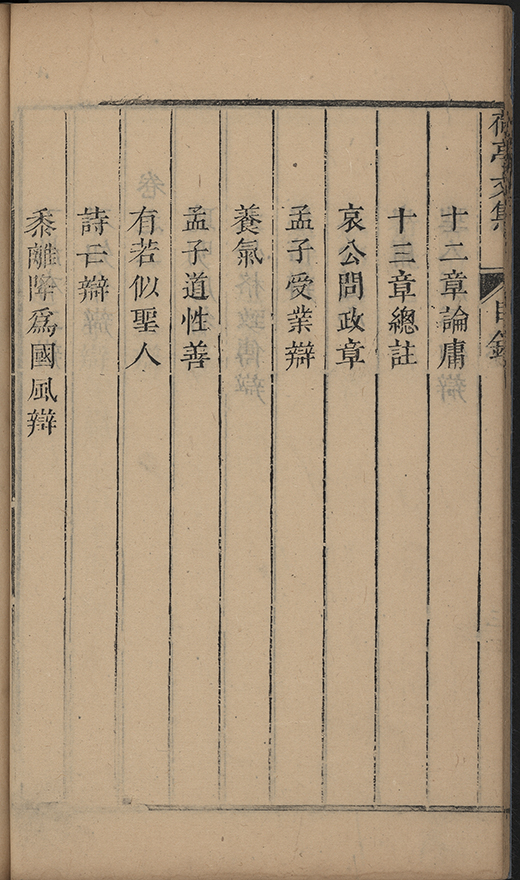 荷亭文集
目錄
十二章論庸
十三章總註
哀公問政章
孟子受業辯
養氣
孟子道性善
有若似聖人
詩亡辯
黍離降爲國風辯